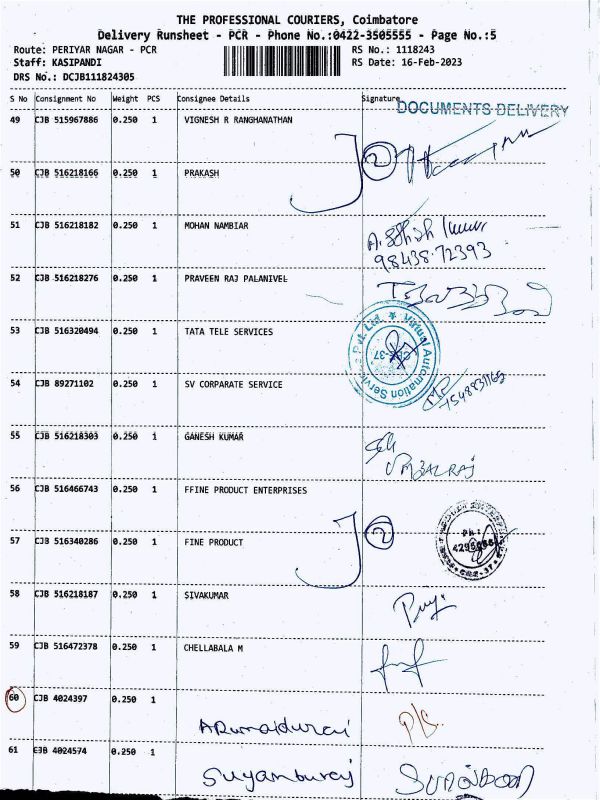 THE PROFESSIONAL COURIERS, Coimbatore
Delivery Runsheet - PCR - Phone No.:0422-3505555 - Page No.:5
Route: PERIYAR NAGAR - PCR
RS No.: 1118243
Staff: KASIPANDI
RS Date: 16-Feb-2023
DRS No.: DCJB111824305
S No Consignment No Weight PCS Consignee Details Signature
DOCUMENTS DELIVERY
49 CJB 515967886 0.250 1 VIGNESH R RANGHANATHAN
50 CJB 516218166 0.250 1 PRAKASH
51 CJB 516218182 0.250 1 MOHAN NAMBIAR
98438 72393
52 CJB 516218276 0.250 1 PRAVEEN RAJ PALANIVEL
53 CJB 516320494 0.250 1 TATA TELE SERVICES
Virtual Automation Services Pvt. Ltd. ★
CBE-37
54 CJB 89271102 0.250 1 SV CORPARATE SERVICE
55 CJB 516218303 0.250 1 GANESH KUMAR
56 CJB 516466743 0.250 1 FFINE PRODUCT ENTERPRISES
57 CJB 516340286 0.250 1 FINE PRODUCT
58 CJB 516218187 0.250 1 SIVAKUMAR
59 CJB 516472378 0.250 1 CHELLABALA M
60 CJB 4024397 0.250 1
ARumaidurai
61 CJB 4024574 0.250 1
Suyamburaj